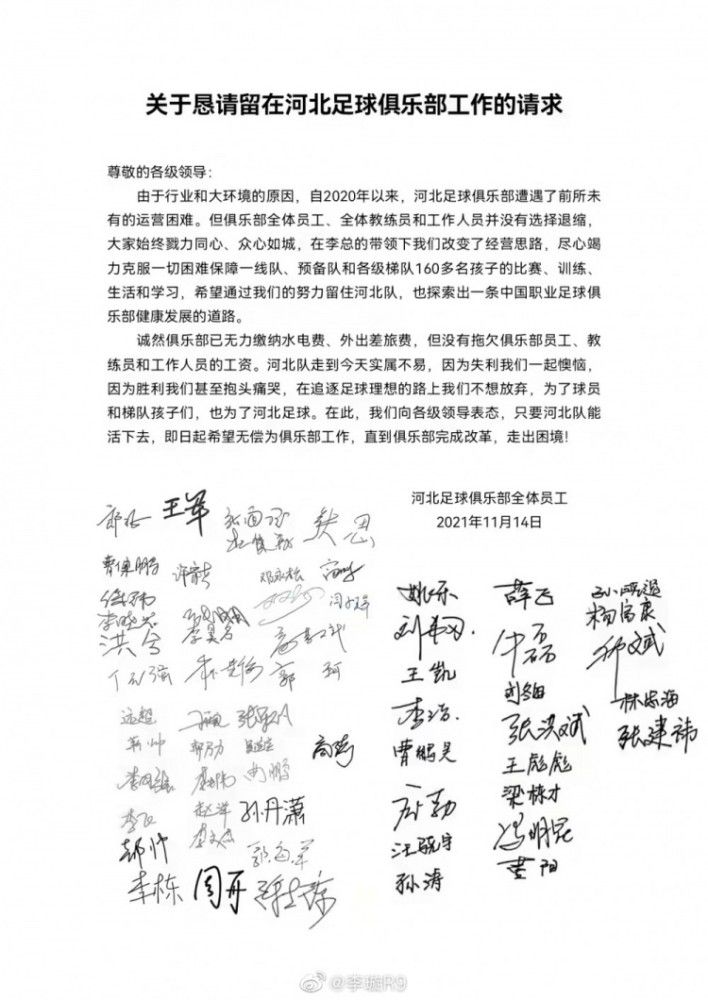 关于恳请留在河北足球俱乐部工作的请求
尊敬的各级领导：
由于行业和大环境的原因，自2020年以来，河北足球俱乐部遭遇了前所未
有的运营困难。但俱乐部全体员工、全体教练员和工作人员并没有选择退缩，
大家始终戮力同心、众心如城，在李总的带领下我们改变了经营思路，尽心竭
力克服一切困难保障一线队、预备队和各级梯队160多名孩子的比赛、训练、
生活和学习，希望通过我们的努力留住河北队，也探索出一条中国职业足球俱
乐部健康发展的道路。
诚然俱乐部已无力缴纳水电费、外出差旅费，但没有拖欠俱乐部员工、教
练员和工作人员的工资。河北队走到今天实属不易，因为失利我们一起懊恼，
因为胜利我们甚至抱头痛哭，在追逐足球理想的路上我们不想放弃，为了球员
和梯队孩子们，也为了河北足球。在此，我们向各级领导表态，只要河北队能
活下去，即日起希望无偿为俱乐部工作，直到俱乐部完成改革，走出困境！
河北足球俱乐部全体员工
2021年11月14日
王军
曹保鹏
洪兮
郭 珂
孙丹潇
郭海军
李栋 周开
姚乐
王凯
李浩
曹鹏昊
汪晓宇
孙涛
薛飞
牛磊
张洪斌
王彪彪
梁栋才
冯明昆
黄阳
杨富康
林忠海
张建祎
@李璇R9